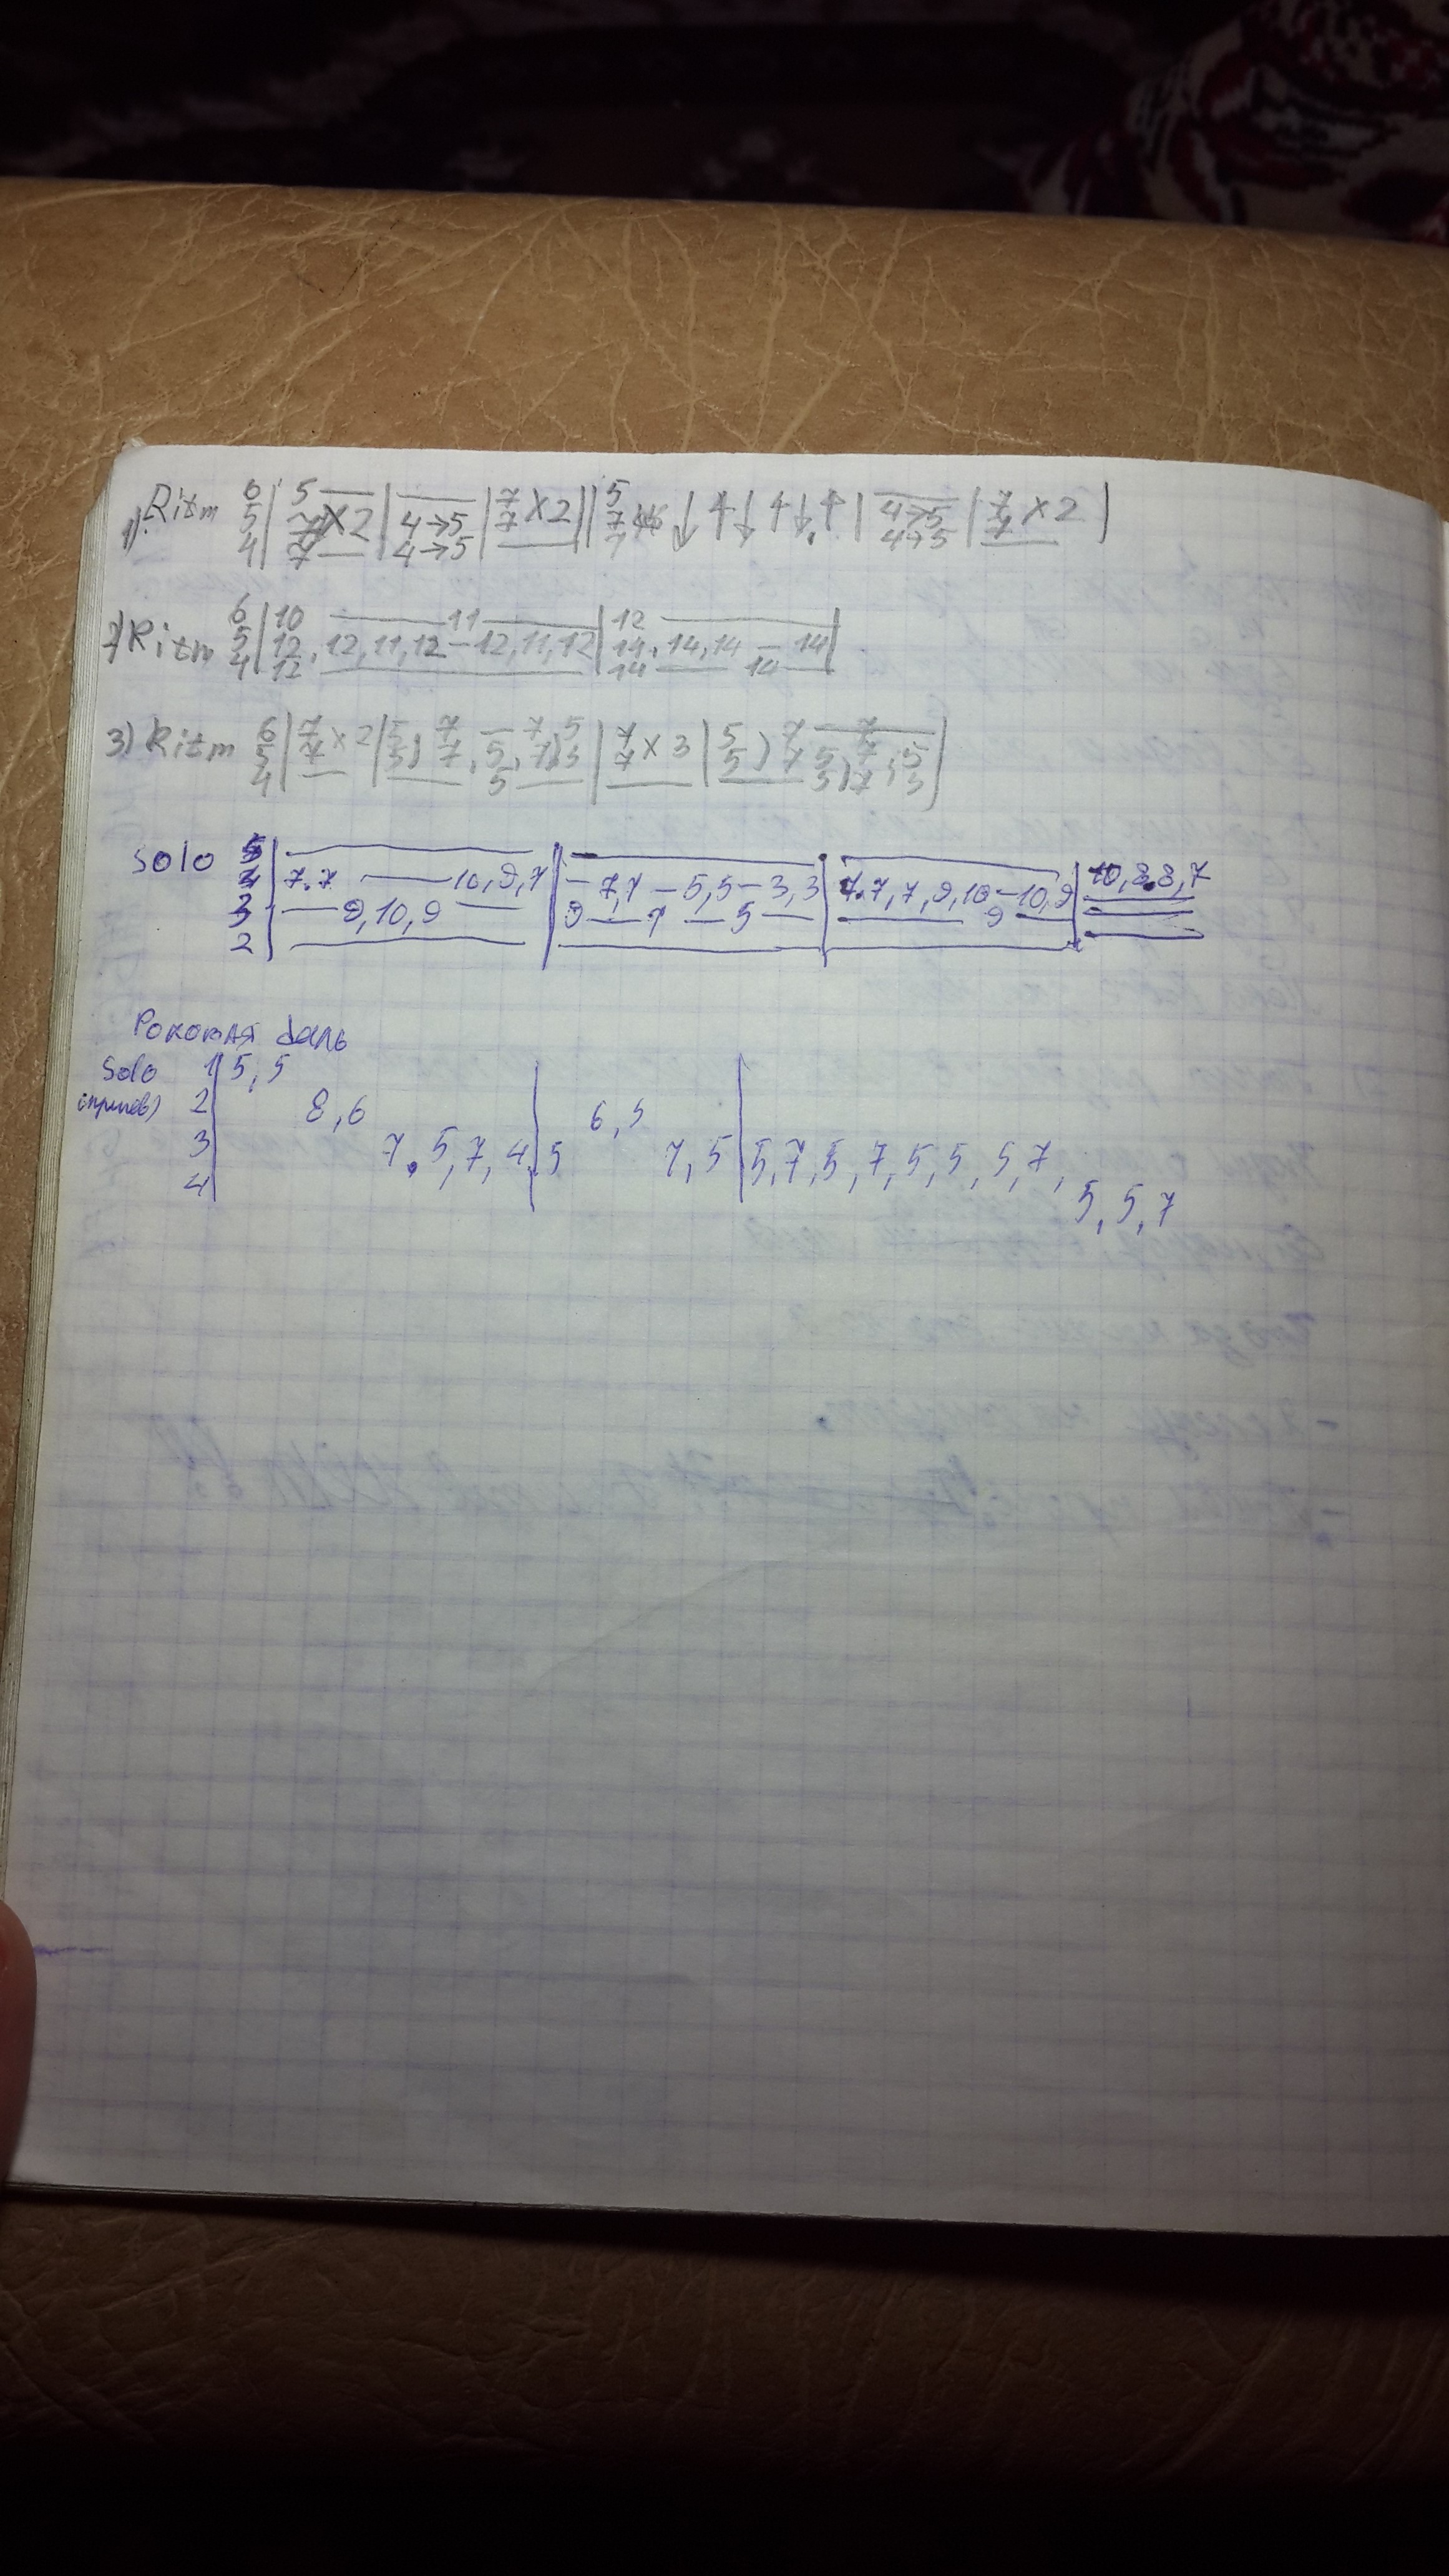 1) Ritm 6 | 5 — | — | 7 x2 || 5 ↓ ↑ ↓ ↑ ↓ ↑ | — | 7 x 2 |
5 | 7 x2 | 4→5 | 7 | 7 | 4→5 | 7
4 | 7 — | 4→5 | — | 7 | 4→5 | —
2) Ritm 6 | 10 — 11 — | 12 —
5 | 12, 12, 11, 12 – 12, 11, 12 | 14, 14, 14 – 14 |
4 | 12 — | 14 — 10 —
3) Ritm 6 | 7 x 2 | 5, 7 — 7, 5 | 7 x 3 | 5, 7 — 7 — |
5 | 7 | 5, 7, 5, 7, 5 | 7 | 5, 7, 5, 7, 5
4 | — | — 5 — | — | — 5, 7, 5
Solo 5 | — | — | — | 10, 8, 8, 7
4 | 7, 7 — 10, 9, 7 | – 7, 7 – 5, 5 – 3, 3 | 7, 7, 7, 9, 10 – 10, 9 | —
3 | — 9, 10, 9 — | 9 — 7 — 5 — | — 9 — | —
2 | — | — | — | —
Роковая даль
Solo 1 | 5, 5
(припев) 2 | 8, 6 | 6, 5
3 | 7, 5, 7, 4 | 5 7, 5 | 5, 7, 5, 7, 5, 5, 5, 7,
4 | 5, 5, 7